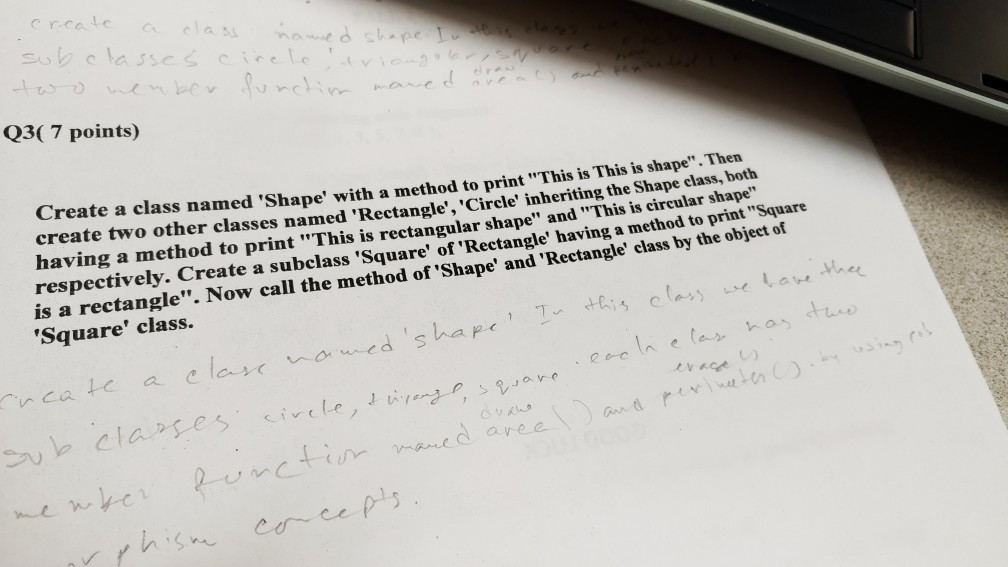 create a class named shape In this class
sub classes circle, triangular, square
two member function named area() and
draw
Q3( 7 points)
Create a class named 'Shape' with a method to print "This is This is shape". Then
create two other classes named 'Rectangle', 'Circle' inheriting the Shape class, both
having a method to print "This is rectangular shape" and "This is circular shape"
respectively. Create a subclass 'Square' of 'Rectangle' having a method to print "Square
is a rectangle". Now call the method of 'Shape' and 'Rectangle' class by the object of
'Square' class.
create a class named 'shape' In this class we have thee
sub classes circle, triange, square. each clas has two
draw erase()
member function named area() and perimeter(). by using
phism concepts.